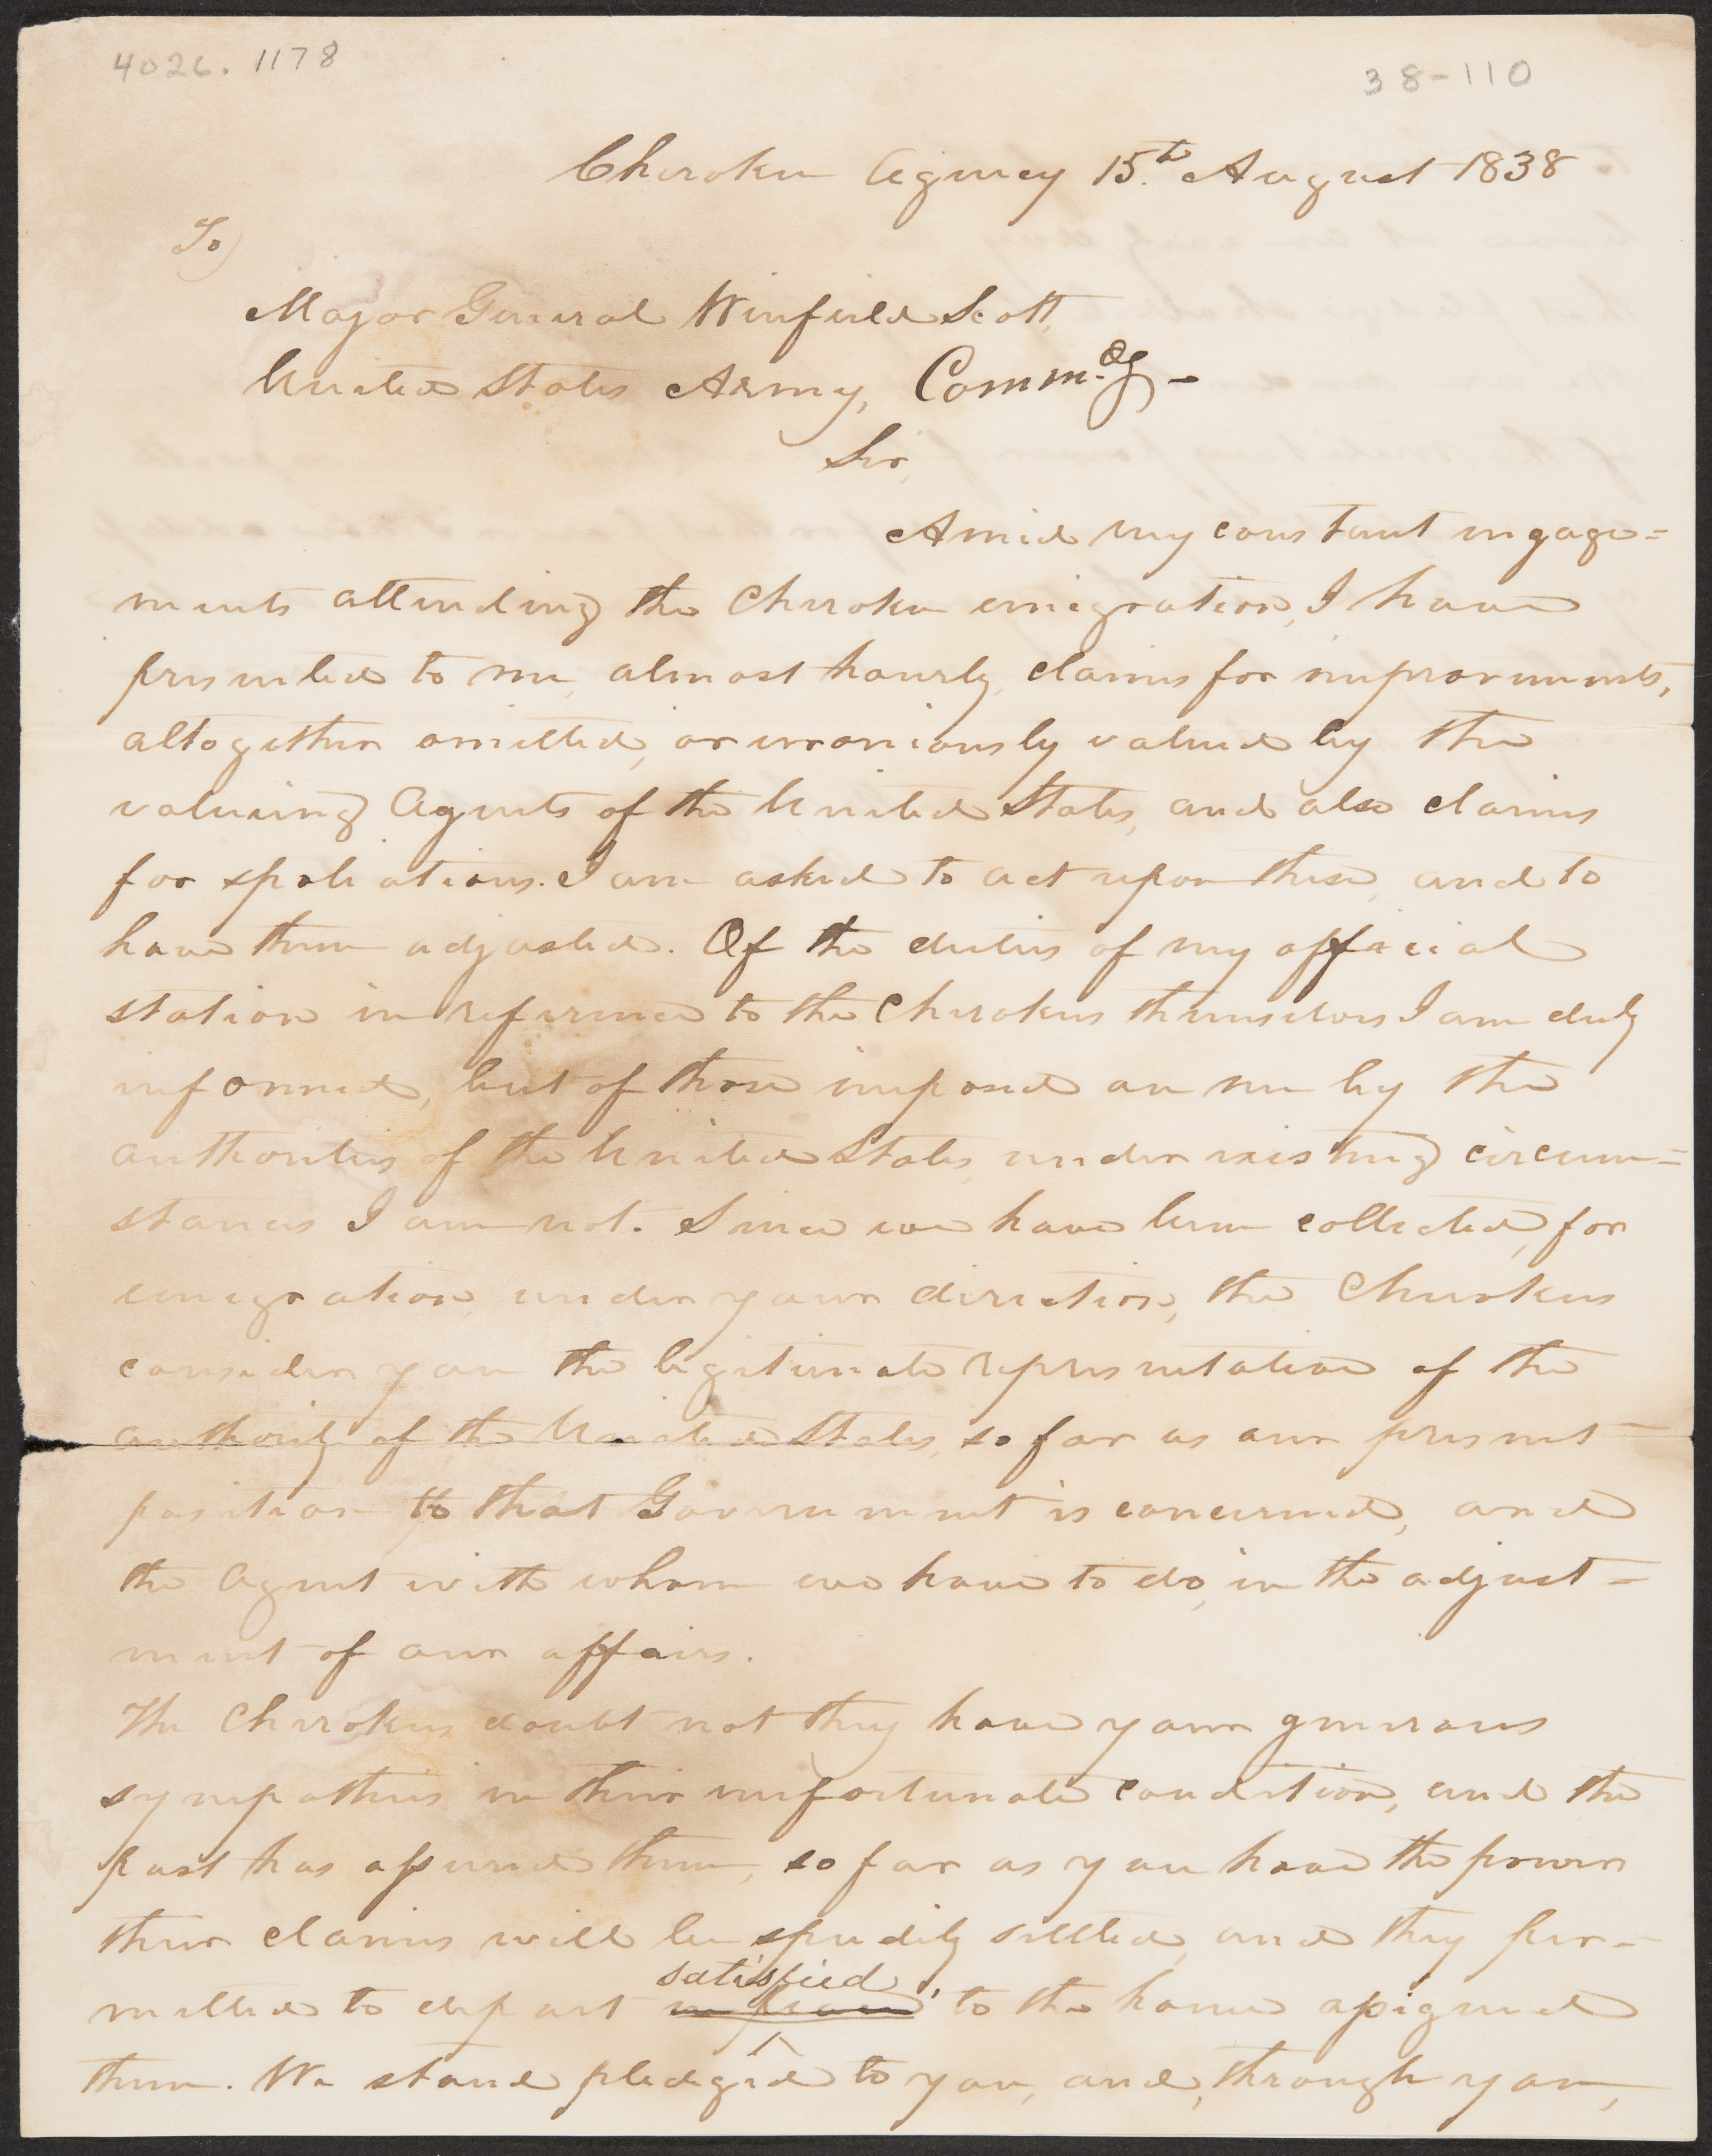 4026.1178
38-110
Cherokee Agency 15.th August 1838
To
Major General Winfield Scott,
United States Army, Comm.dg -
Sir,
Amid my constant engage=
ments attending the Cherokee emigration, I have
presented to me, almost hourly, claims for improvements,
altogether omitted, or erroniously valued by the
valuing Agents of the United States, and also claims
for spoliations. I am asked to act upon these, and to
have them adjusted. Of the duties of my official
station in reference to the Cherokees themselves I am duly
informed, but of those imposed on me by the
authorities of the United States, under existing circum=
stances I am not. Since we have been collected, for
emigration, under your direction, the Cherokees
consider you the legitimate representative of the
authority of the United States, so far as our present
position to that Government is concerned, and
the Agent with whom we have to do, in the adjust=
ment of our affairs.
The Cherokees doubt not they have your generous
sympathies in their unfortunate condition, and the
past has assured them, so far as you have the power
their claims will be speedily settled, and they per=
satisfied,
mitted to depart in peace, to the home assigned
them. We stand pledged to you, and, through you,